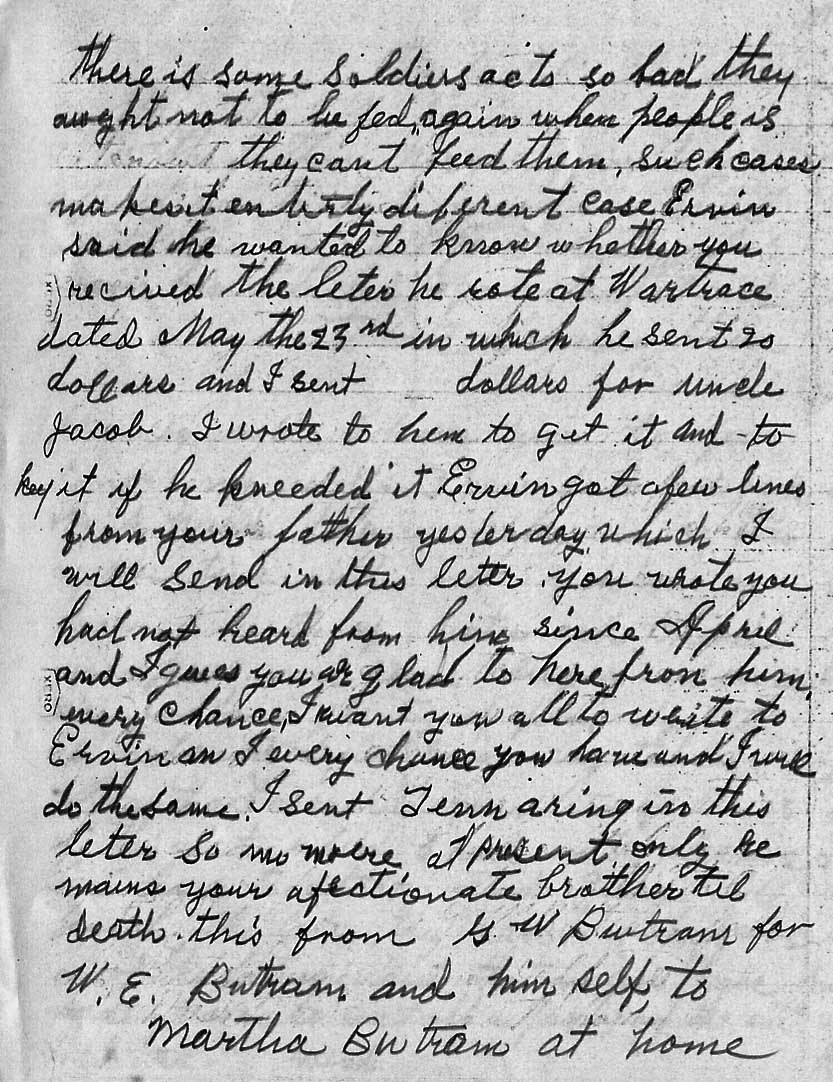 there is some soldiers acts so bad they
aught not to be fed, again when people is
they cant feed them, such cases
makes it entirly diferent case Ervin
said he wanted to know whether you
recived the leter he rote at Wartrace
dated May the 23rd in which he sent 20
dollars and I sent dollars for uncle
Jacob. I wrote to him to get it and to
key it if he kneeded it Ervin got a few lines
from your father yesterday which I
will send in this leter. you wrote you
had not heard from him since April
and I guess you ar glad to here from him,
XERO
every chance, I want you all to write to
Ervin an I every chance you have and I will
do the same. I sent Tenn a ring in this
leter So no moere at present, only re
mains your afectionate brother til
death. this from G W Butram for
W. E. Butram and him self, to
Martha Butram at home